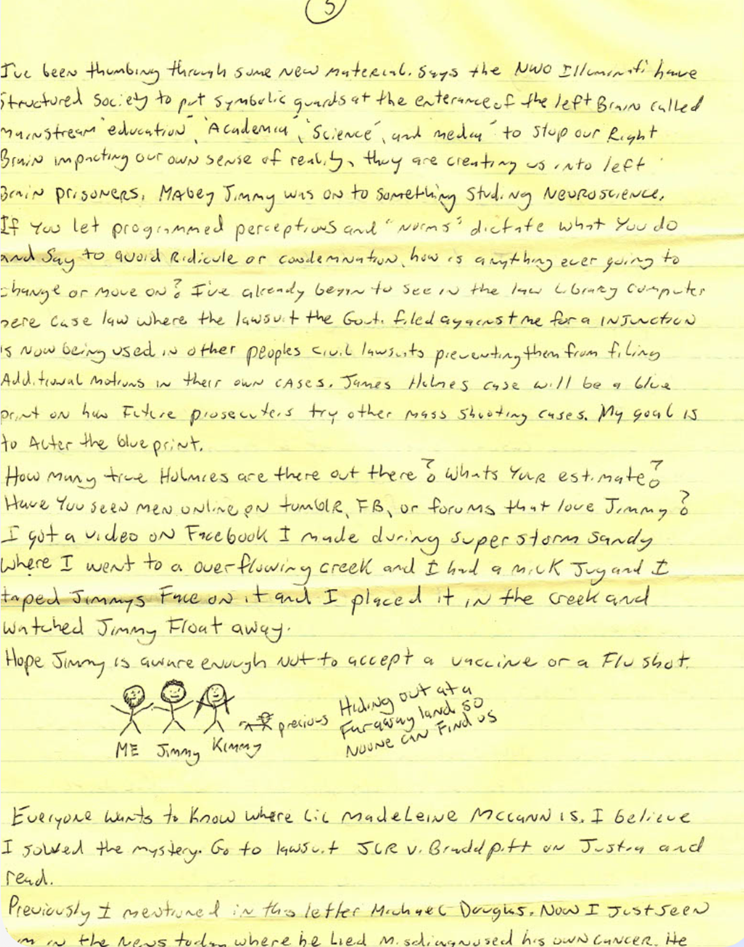 5
I've been thumbing through some new material. Says the NWO Illuminati have
Structured Society to put symbolic guards at the enterance of the left Brain called
mainstream "education", "Academia", "Science", and media" to stop our Right
Brain impacting our own sense of reality, they are creating us into left
Brain prisoners. Mabey Jimmy was on to something studing NEUROSCIENCE.
If You let programmed perceptions and "norms" dictate what You do
and Say to avoid Ridicule or condemnation, how is anything ever going to
change or move on? I've already begin to see in the law Library computer
here case law where the lawsuit the Govt. filed against me for a INJUNCTION
is now being used in other peoples civil lawsuits preventing them from filing
Additional motions in their own cases. James Holmes case will be a blue
print on how Future prosecuters try other mass shooting cases. My goal is
to Alter the blueprint.
How many true Holmies are there out there? Whats Your estimate?
Have You seen men online on tumblR, FB, or forums that love Jimmy?
I got a video on Facebook I made during superstorm Sandy
where I went to a overflowing creek and I had a milk Jug and I
taped Jimmys Face on it and I placed it in the creek and
watched Jimmy Float away.
Hope Jimmy is aware enough not to accept a vaccine or a Flu shot.
ME Jimmy Kimmy precious
Hiding out at a
Faraway land so
Noone can Find us
Everyone wants to Know where Lil Madeleine McCann is. I believe
I solved the mystery. Go to lawsuit JLR v. Bradd pitt on Justia and
read.
Previously I mentioned in this letter Michael Douglas. Now I Just seen
him in the News today where he lied misdiagnused his own cancer. He